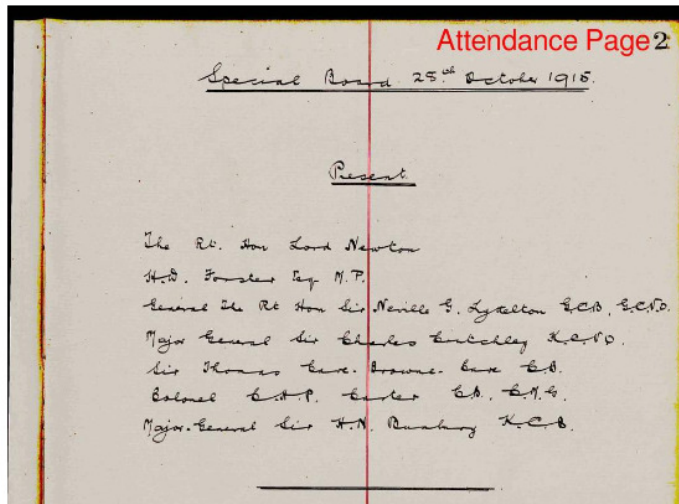 Attendance Page 2
Special Board 28th October 1915.
Present
The Rt. Hon Lord Newton
H.W. Forster Esq M.P.
General The Rt Hon Sir Neville G. Lyttelton G.C.B, G.C.V.O.
Major General Sir Charles Crutchley K.C.V.O.
Sir Thomas Cave-Browne-Cave C.B.
Colonel C.H.P. Carter C.B. C.M.G.
Major-General Sir H.N. Bunbury K.C.B.